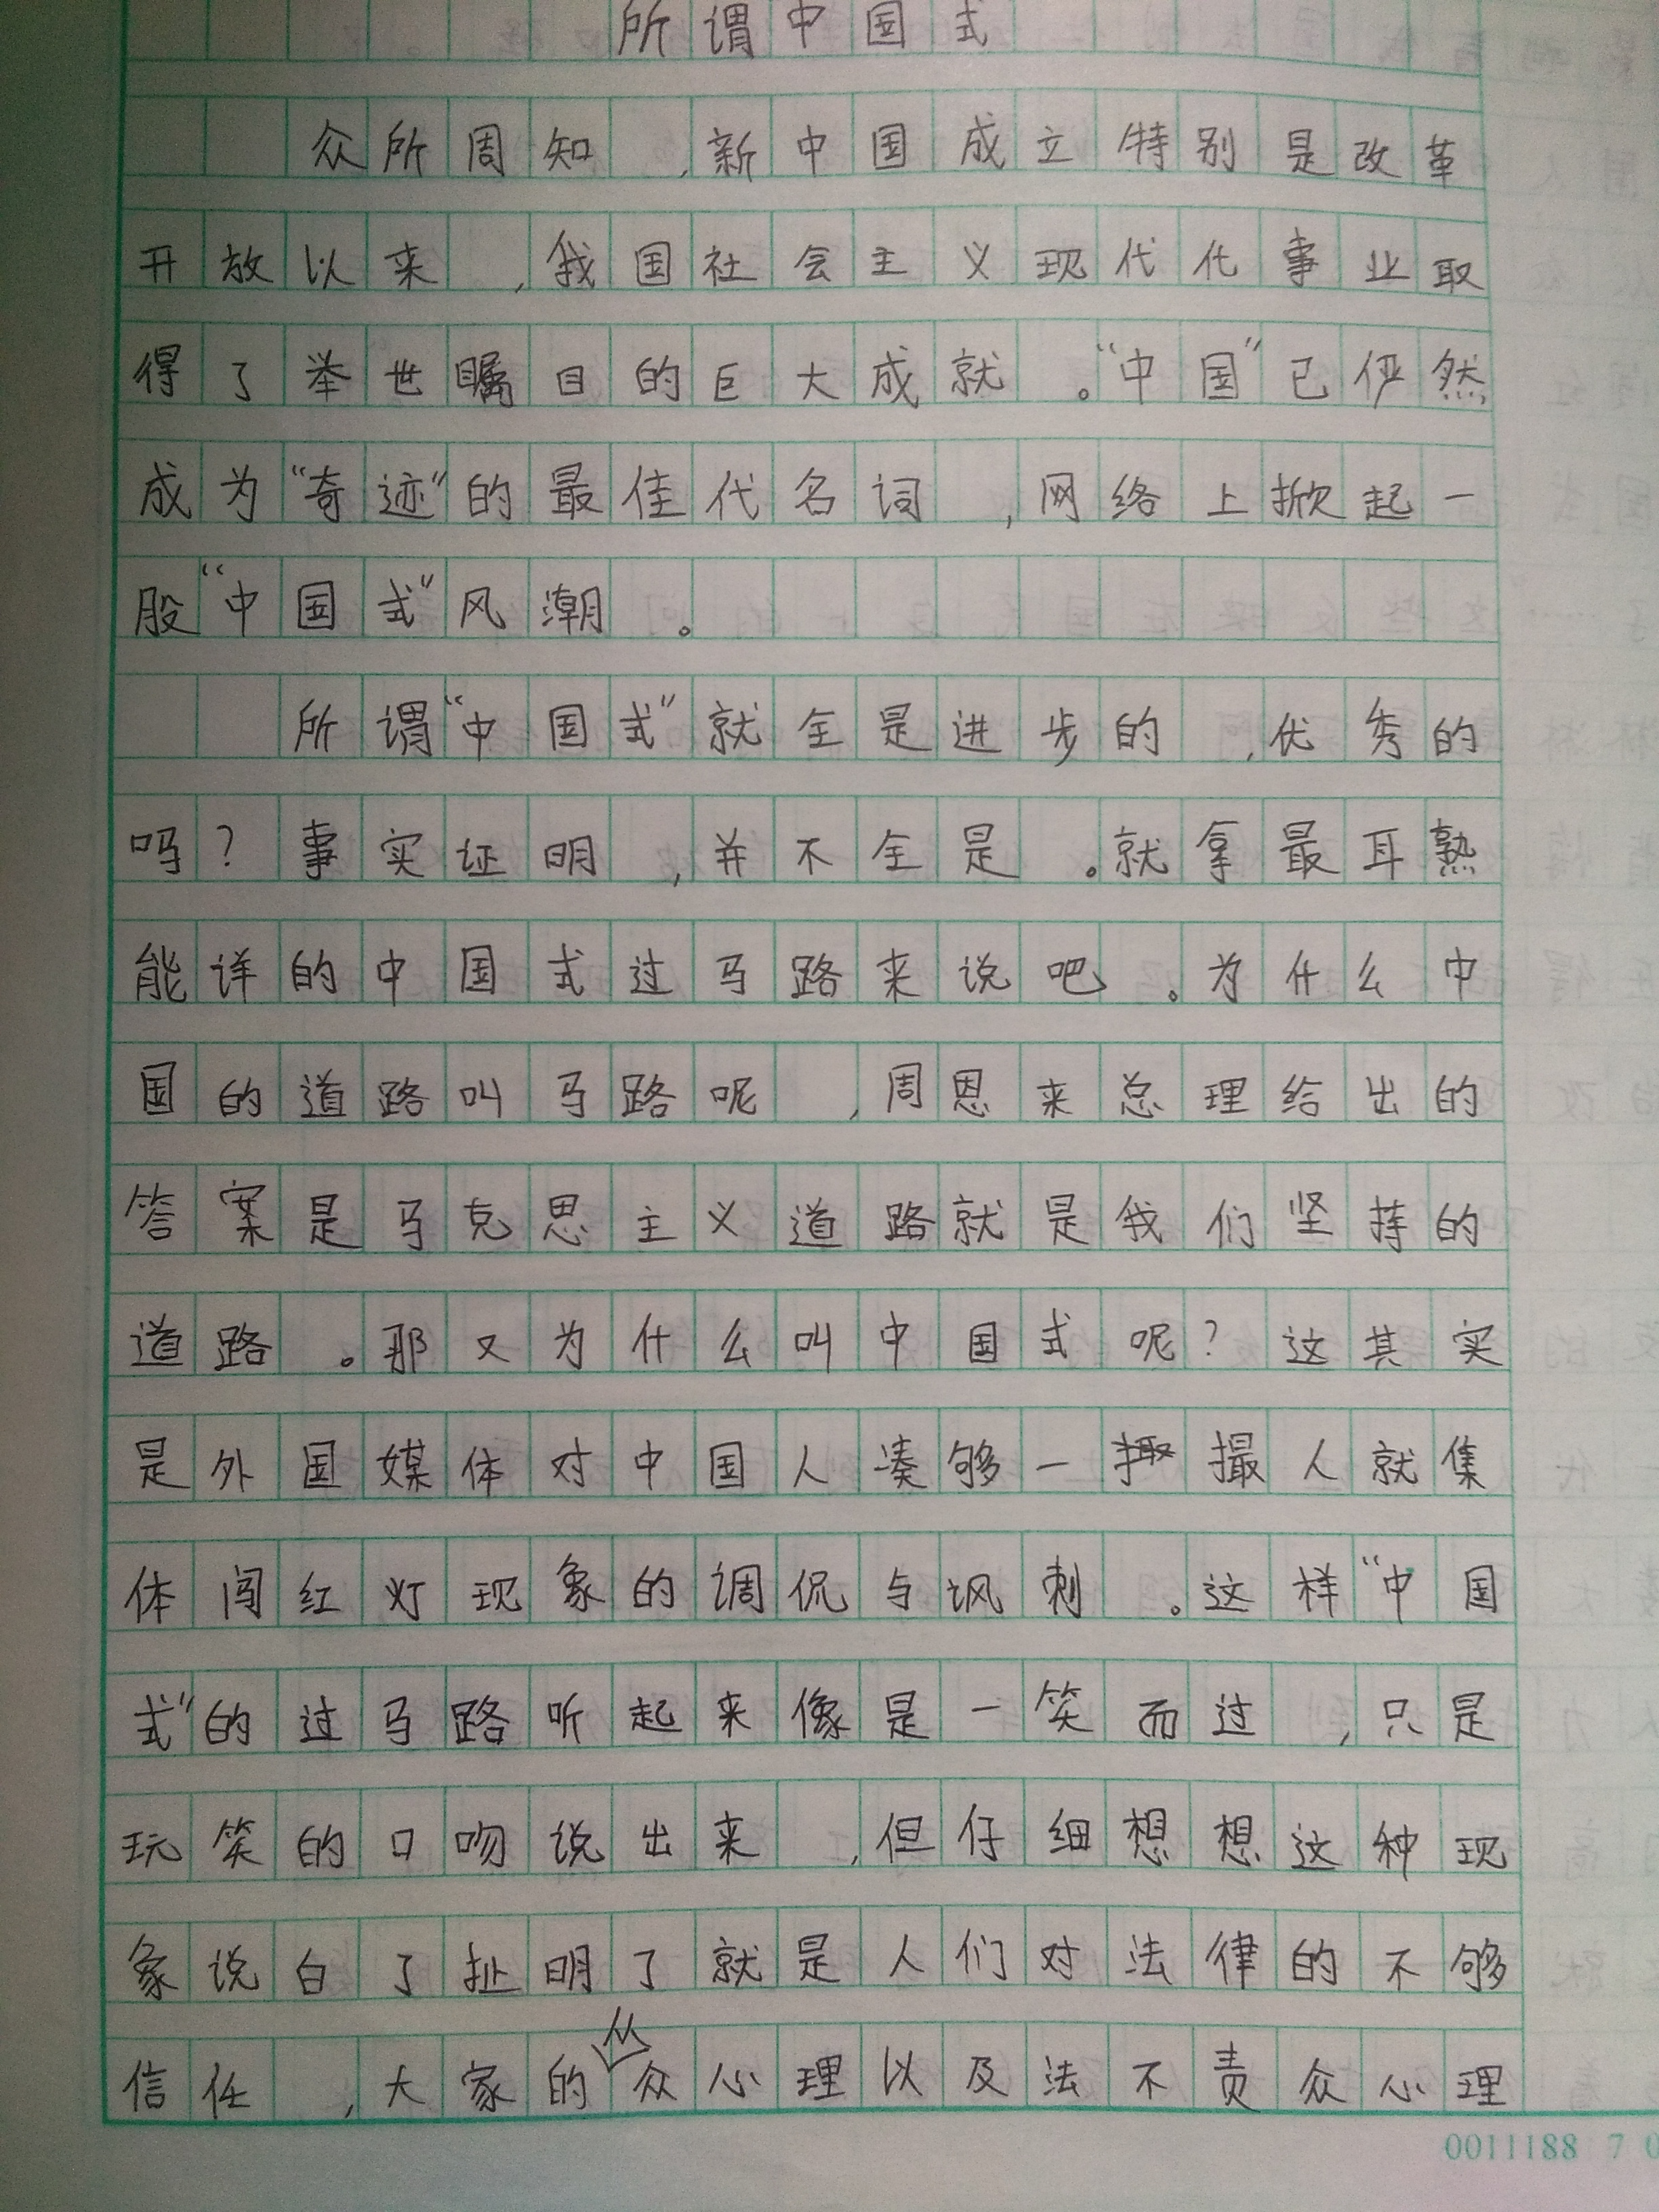 所谓中国式
众所周知,新中国成立特别是改革
开放以来,我国社会主义现代化事业取
得了举世瞩目的巨大成就。“中国”已俨然
成为“奇迹”的最佳代名词,网络上掀起一
股“中国式”风潮。
所谓“中国式”就全是进步的,优秀的
吗?事实证明,并不全是。就拿最耳熟
能详的中国式过马路来说吧。为什么中
国的道路叫马路呢,周恩来总理给出的
答案是马克思主义道路就是我们坚持的
道路。那又为什么叫中国式呢?这其实
是外国媒体对中国人凑够一撮人就集
体闯红灯现象的调侃与讽刺。这样“中国
式”的过马路听起来像是一笑而过,只是
玩笑的口吻说出来,但仔细想想这种现
象说白了扯明了就是人们对法律的不够
信任,大家的从众心理以及法不责众心理
0011188 7 0